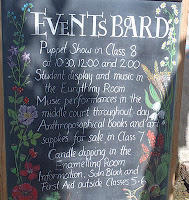 EVENTS BARD
Puppet Show in Class 8
at 10:30, 12:00 and 2:00
Student display and music in
the Eurythmy Room
Music performances in the
middle court throughout day
Anthroposophical books and art
supplies for sale in Class 7
Candle dipping in the
Enamelling Room
Information, Sala Block and
First Aid outside Classes 5-6